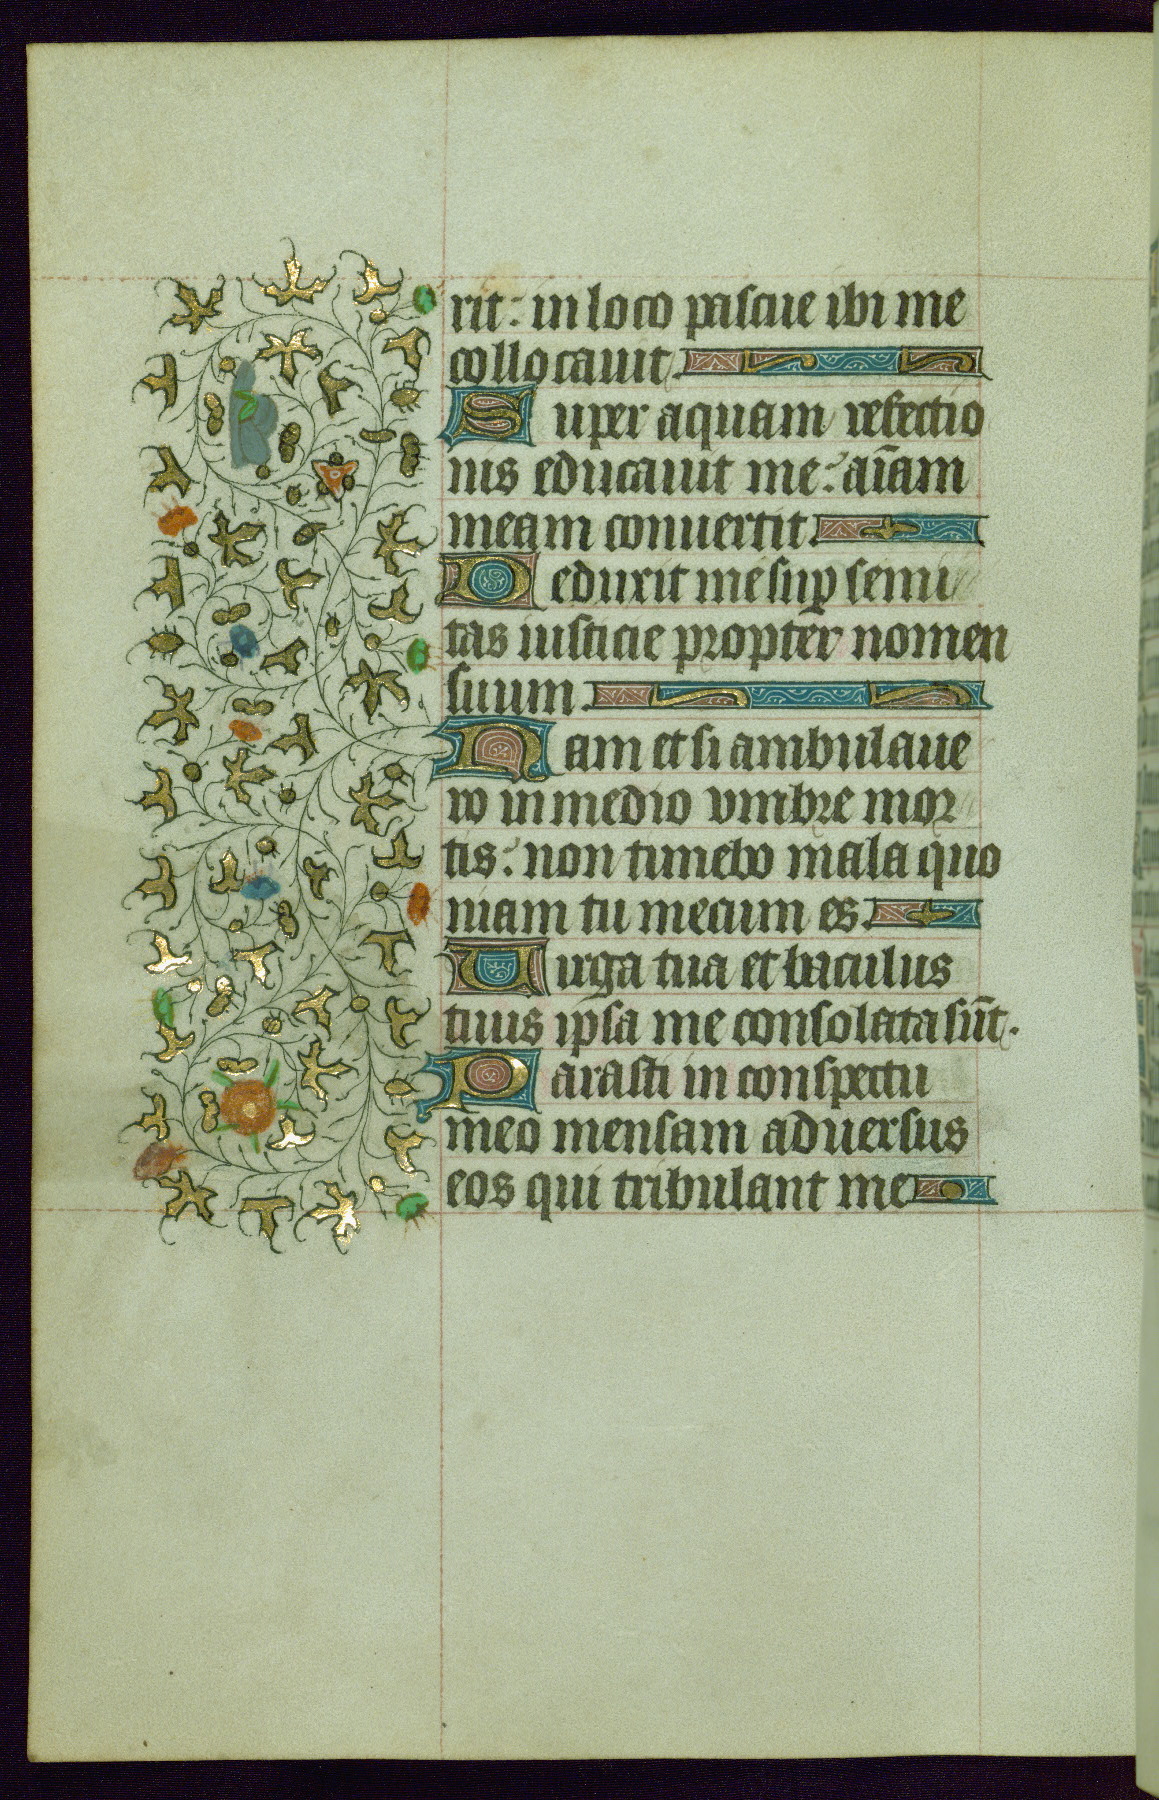 rit: in loco pascue ibi me
collocauit.
Super aquam refectio
nis educauit me: aīam
meam conuertit.
Deduxit me suꝑ semi
tas iusticie propter nomen
suum.
Nam et si ambulaue
ro in medio vmbre mor
tis: non timebo mala quo
niam tu mecum es.
Uirga tua et baculus
tuus ipsa me consolata sūt.
Parasti in conspectu
meo mensam aduersus
eos qui tribulant me